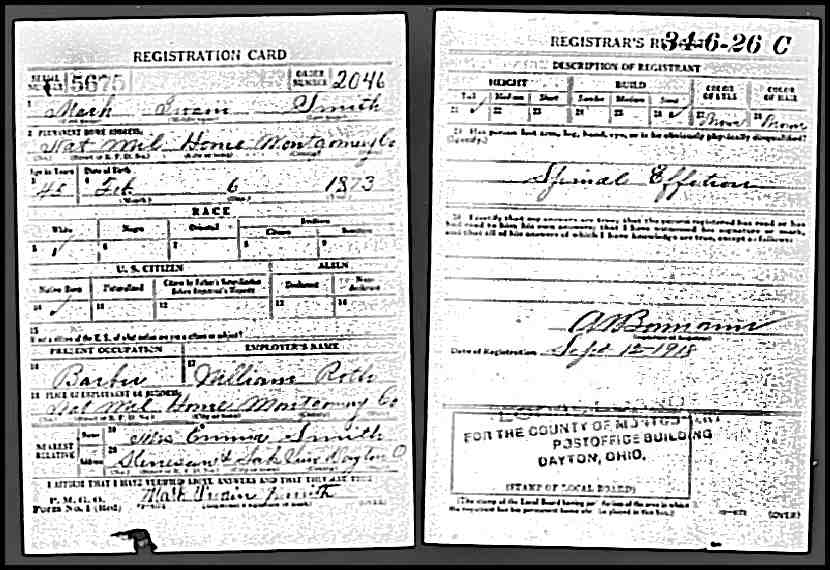 REGISTRATION CARD
SERIAL NUMBER 5675 ORDER NUMBER 2046
1 Mark Smith
2 PERMANENT HOME ADDRESS:
Nat Mil Home Montgomery Co
Age in Years Date of Birth
45 Feb 6 1873
(Month.) (Day.)
RACE
White Negro Oriental
Citizen
5 6 7 8 9
U. S. CITIZEN ALIEN
Native Born Naturalized Citizen by Father's Naturalization Before Registrant's Majority Declarant Non-declarant
10 11 12 13 14
15
If not a citizen of the U. S. of what nation are you a citizen or subject?
PRESENT OCCUPATION EMPLOYER'S NAME
16 17
Barber William Roth
18 PLACE OF EMPLOYMENT OR BUSINESS:
Nat Mil Home Montgomery Co
NEAREST RELATIVE Name 19 Mrs Emma Smith
Address 20 Dayton O
I AFFIRM THAT I HAVE VERIFIED ABOVE ANSWERS AND THAT THEY ARE TRUE
P. M. G. O.
Form No. 1 (Red) Mark Smith
(OVER)
REGISTRAR'S 34-6-26 C
DESCRIPTION OF REGISTRANT
HEIGHT BUILD COLOR OF EYES COLOR OF HAIR
Tall Medium Short Slender Medium Stout
21 22 23 24 25 26 27 Brown 28 Brown
29 Has person lost arm, leg, hand, eye, or is he obviously physically disqualified?
(Specify.)
Spinal
30 I certify that my answers are true; that the person registered has read or has
had read to him his own answers; that I have witnessed his signature or mark,
and that all of his answers of which I have knowledge are true, except as follows:
(Signature of Registrar)
Date of Registration Sept 12-1918
FOR THE COUNTY OF
POSTOFFICE BUILDING
DAYTON, OHIO.
(STAMP OF LOCAL BOARD)
(The stamp of the Local Board having jurisdiction of the area in which
the registrant has his permanent home shall be placed in this box.)
(OVER)